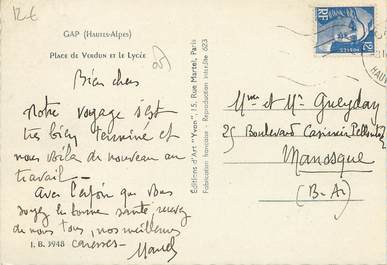 12-6
GAP (HAUTES-ALPES)
Place de Verdun et le Lycée
Bien chers
Notre voyage s'est
très bien terminé et
nous voilà de nouveau au
travail —
Avec l'espoir que vous
soyez en bonne santé, recevez
de nous tous, nos meilleures
caresses —
Marcel
I. B. 3948
Editions d'Art "Yvon", 15, Rue Martel, Paris
Fabrication française - Reproduction interdite 623
RF
12
Mme et Mr Gueydan
25 Boulevard Casimir Pelloutier
Manosque
(B-A)